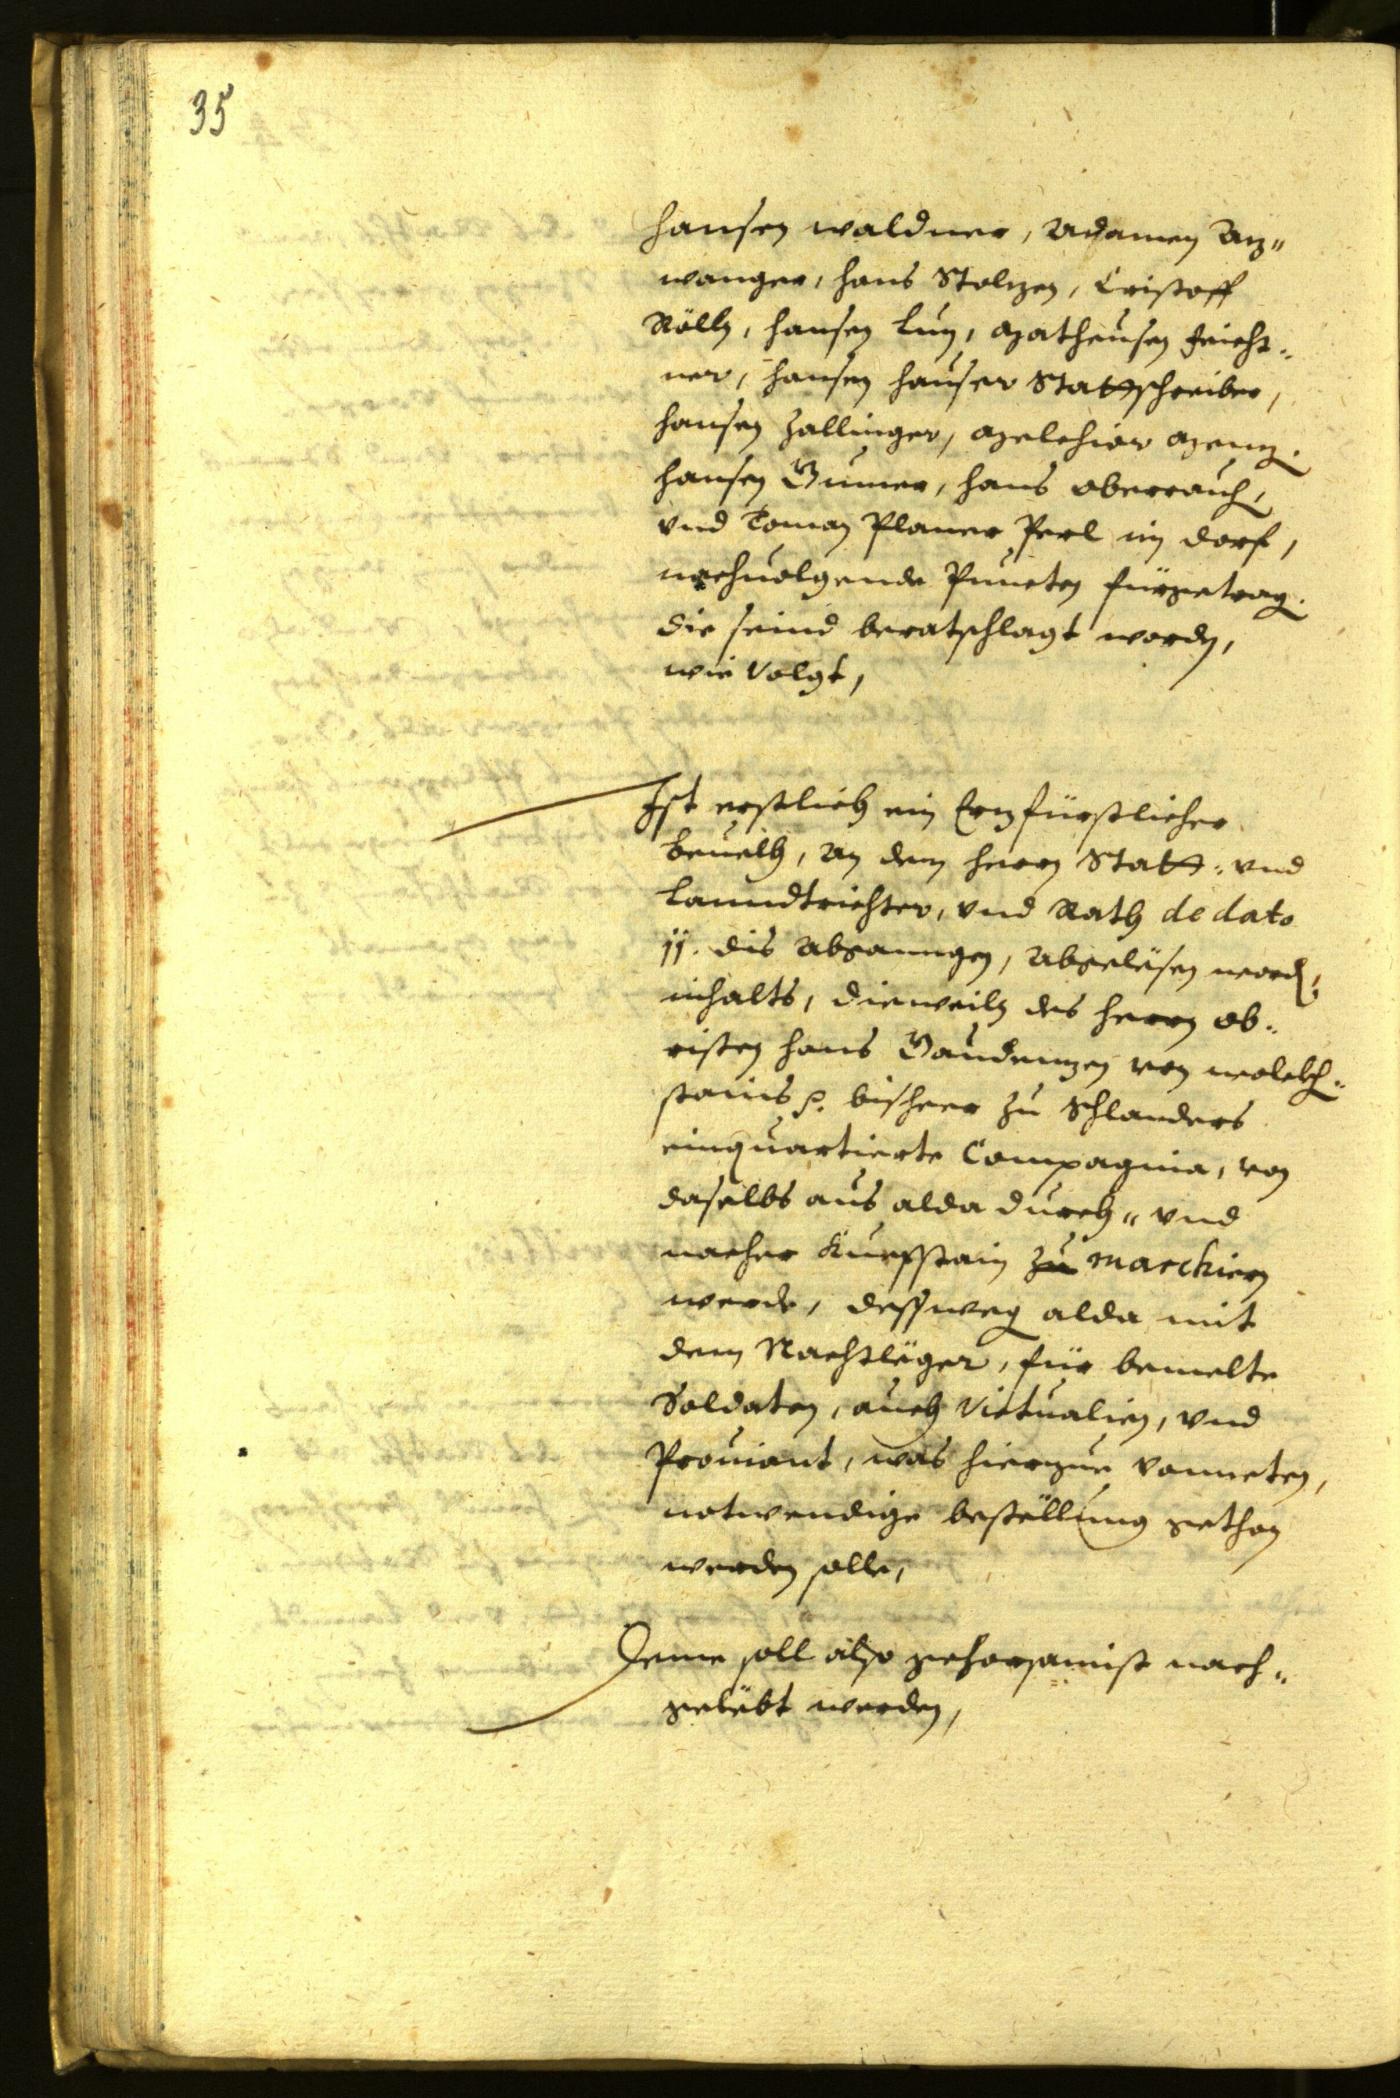 35
Hansen Waldner, Adamen Az„
wanger, Hans Stolzen, Cristoff
Röllz, Hansen Lun, Matheusen Feicht„
ner, Hansen Hauser Stattschreiber,
Hansen Zallinger, Melchior Menz.
Hansen Gumer, Hans Oberrauch,
vnd Toman Planer Perl im Dorf,
nachuolgende Puncten fürgetrag.
Die seind beratschlagt worden,
wie Volgt,
Ist erstlich ein Erzfürstlicher
beuelch, An dem herrn Statt„ vnd
Lanndtrichter, vnd Rath de dato
11. dis Abganngen, Abgelesen word,
inhalts, dieweiln des herrn Ob„
risten Hans Gaudenzen von Wolckh„
stains p. bisheer zu Schlanders
einquartierte Compagnia, von
daselbs aus alda durch„ vnd
nacher Kueffstain zu marchiern
werde, dessweg alda mit
dem Nachtleger, für bemelte
Soldaten, auch Victualien, vnd
Prouiant, was hierzue Vonneten,
notwendige bestellung gethan
werden solle,
Deme soll also gehorsamist nach„
gelebt werden,